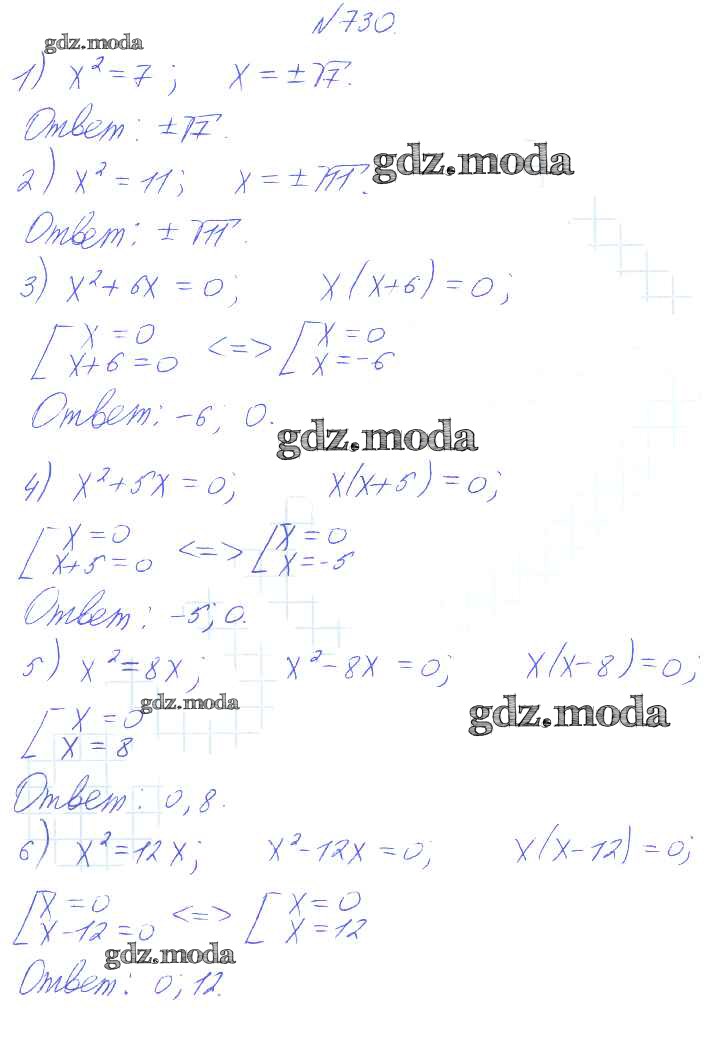 №730.
gdz.moda
1) x² = 7; x = ±√7.
Ответ: ±√7.
gdz.moda
2) x² = 11; x = ±√11.
Ответ: ±√11.
3) x² + 6x = 0; x(x+6) = 0;
[ x = 0 <=> [ x = 0
x+6 = 0 x = -6
Ответ: -6; 0.
gdz.moda
4) x² + 5x = 0; x(x+5) = 0;
[ x = 0 <=> [ x = 0
x+5 = 0 x = -5
Ответ: -5; 0.
5) x² = 8x; x² - 8x = 0; x(x-8) = 0;
gdz.moda
gdz.moda
[ x = 0
x = 8
Ответ: 0, 8.
6) x² = 12x; x² - 12x = 0; x(x-12) = 0;
[ x = 0 <=> [ x = 0
x-12 = 0 x = 12
gdz.moda
Ответ: 0; 12.